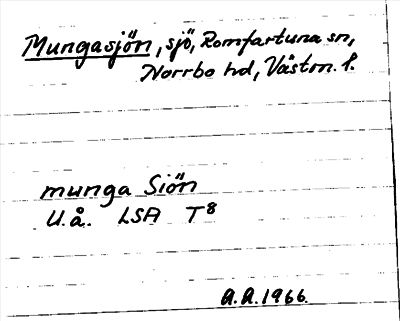 Mungasjön, sjö, Romfartuna sn,
Norrbo hd, Västm. l.
munga Siön
U.å. LSA T8
A.A.1966.